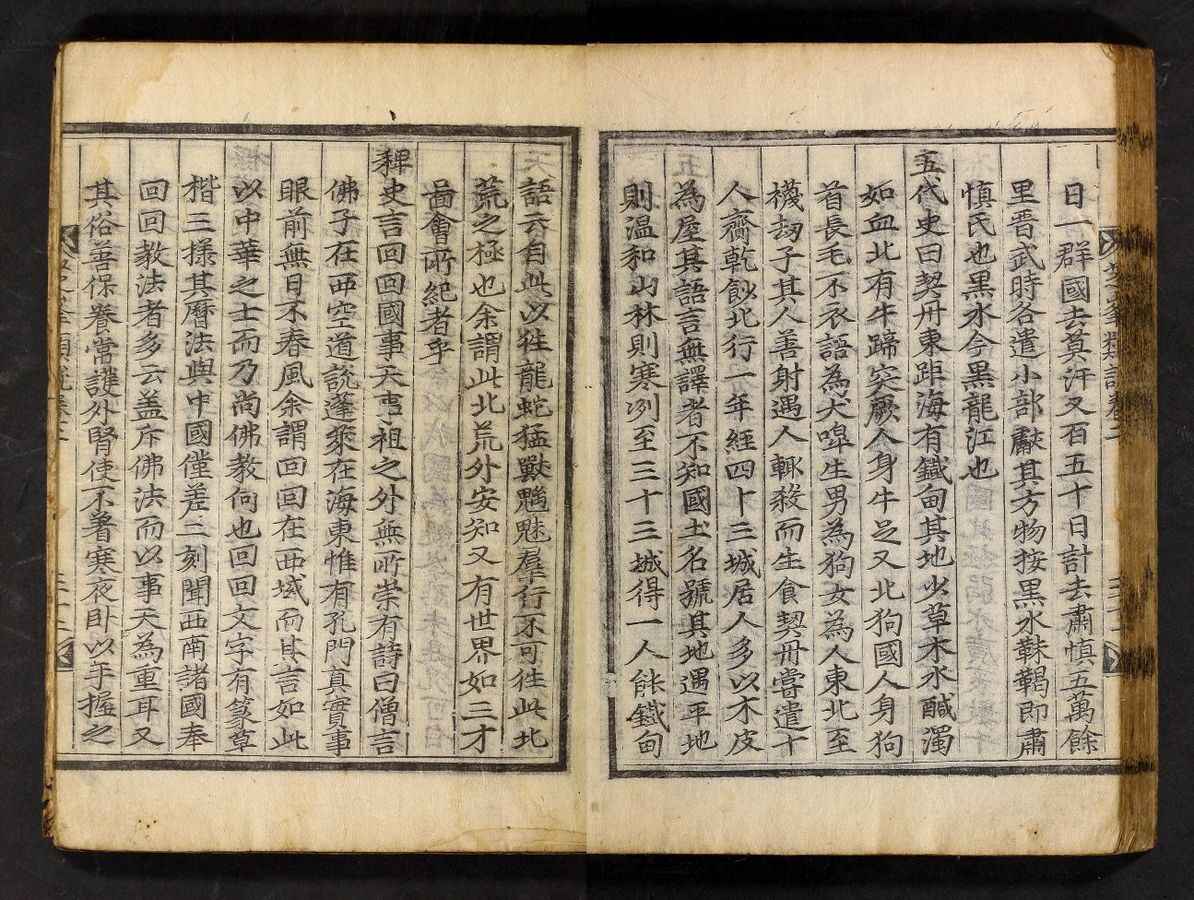 日一群國去莫汗又百五十日計去肅慎五萬餘
里晋武時各遣小部獻其方物按黑水靺鞨即肅
慎氏也黑水今黒龍江也
五代史曰契丹東距海有鐵甸其地少草木水醎濁
如血北有牛蹄突厥人身牛足又北狗國人身狗
首長毛不衣語為犬嘷生男為狗女為人東北至
襪劫子其人善射遇人輒殺而生食契丹嘗遣十
人齎乾飱北行一年經四十三城居人多以木皮
為屋其語言無譯者不知國土名號其地遇平地
則溫和山林則寒冽至三十三城得一人能鐵甸
語云自此以徃龍蛇猛獸魑魅羣行不可徃此北
荒之極也余謂此北荒外安知又有世界如三才
啚會所紀者乎
稗史言回回國事天事祖之外無所崇有詩曰僧言
佛子在西空道說蓬萊在海東惟有孔門真實事
眼前無日不春風余謂回回在西域而其言如此
以中華之士而乃尚佛教何也回回文字有篆草
楷三樣其曆法與中國僅差三刻聞西南諸國奉
回回教法者多云盖斥佛法而以事天為重耳又
其俗善保養常護外腎使不着寒夜卧以手握之